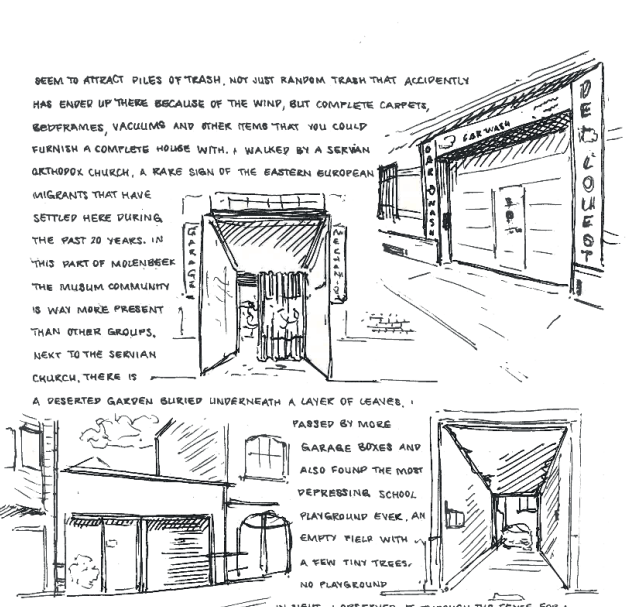 SEEM TO ATTRACT PILES OF TRASH, NOT JUST RANDOM TRASH THAT ACCIDENTLY
HAS ENDED UP THERE BECAUSE OF THE WIND, BUT COMPLETE CARPETS,
BEDFRAMES, VACUUMS AND OTHER ITEMS THAT YOU COULD
FURNISH A COMPLETE HOUSE WITH. I WALKED BY A SERVIAN
ORTHODOX CHURCH, A RARE SIGN OF THE EASTERN EUROPEAN
MIGRANTS THAT HAVE
SETTLED HERE DURING
THE PAST 20 YEARS. IN
THIS PART OF MOLENBEEK
THE MUSLIM COMMUNITY
IS WAY MORE PRESENT
THAN OTHER GROUPS.
NEXT TO THE SERVIAN
CHURCH, THERE IS
A DESERTED GARDEN BURIED UNDERNEATH A LAYER OF LEAVES. I
PASSED BY MORE
GARAGE BOXES AND
ALSO FOUND THE MOST
DEPRESSING SCHOOL
PLAYGROUND EVER, AN
EMPTY FIELD WITH
A FEW TINY TREES.
NO PLAYGROUND
IN SIGHT. I OBSERVED IT THROUGH THE FENCE FOR
CAR WASH
CAR WASH
GARAGE